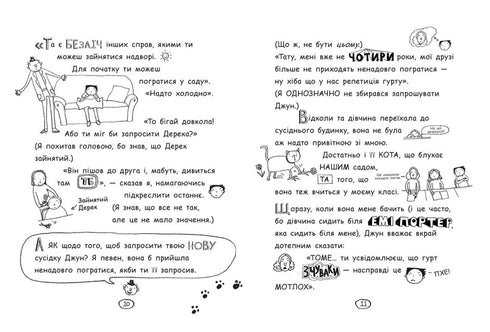 «Та є БЕЗЛІЧ інших справ, якими ти
можеш зайнятися надворі.
Для початку ти можеш
погратися у саду».
«Надто холодно».
«То бігай довкола!
Або ти міг би запросити Дерека?»
(Я похитав головою, бо знав, що Дерек
зайнятий.)
«Він пішов до друга і, мабуть, дивиться
там «ТБ» – сказав я, намагаючись
підкреслити останнє.
Зайнятий
Дерек
(Я знав, що все не так,
але це не мало значення.)
А ЯК щодо того, щоб запросити твою НОВУ
сусідку Джун? Я певен, вона б прийшла
ненадовго погратися, якби ти її запросив.
10
(Що ж, не бути цьому.)
«Тату, мені вже не ЧОТИРИ роки, мої друзі
більше не приходять ненадовго погратися —
ну хіба що у нас репетиція гурту».
(Я ОДНОЗНАЧНО не збирався запрошувати
Джун.)
Відколи та дівчина переїхала до
сусіднього будинку, вона не була
аж надто привітною зі мною.
Достатньо і її КОТА, що блукає
НАШИМ садом,
ТА того, що
вона теж вчиться у моєму класі.
Щоразу, коли вона мене бачить (і це часто,
бо дівчина сидить біля ЕМІ ПОРТЕР,
яка сидить біля мене), Джун вважає вкрай
дотепним сказати:
«ТОМЕ... ти усвідомлюєш, що гурт
ЗЧУВАКИ — насправді це
МОТЛОХ».
ПХЕ!
11